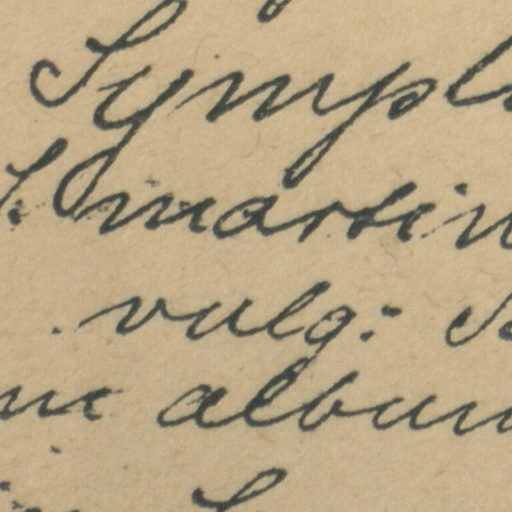 Symph
S. martin
vulg: S
album